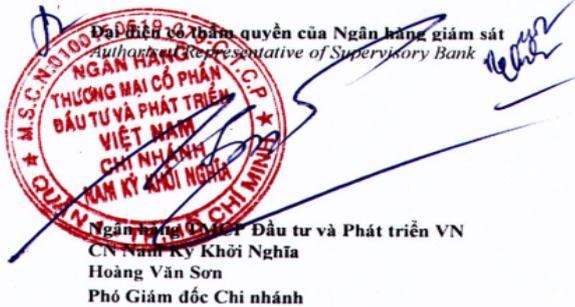 Đại diện có thẩm quyền của Ngân hàng giám sát
Authorized Representative of Supervisory Bank
M.S.C.N
C.P
NGÂN HÀNG
THƯƠNG MẠI CỔ PHẦN
ĐẦU TƯ VÀ PHÁT TRIỂN
VIỆT NAM
CHI NHÁNH
NAM KỲ KHỞI NGHĨA
QUẬN
HỒ CHÍ MINH
Ngân hàng TMCP Đầu tư và Phát triển VN
CN Nam Kỳ Khởi Nghĩa
Hoàng Văn Sơn
Phó Giám đốc Chi nhánh